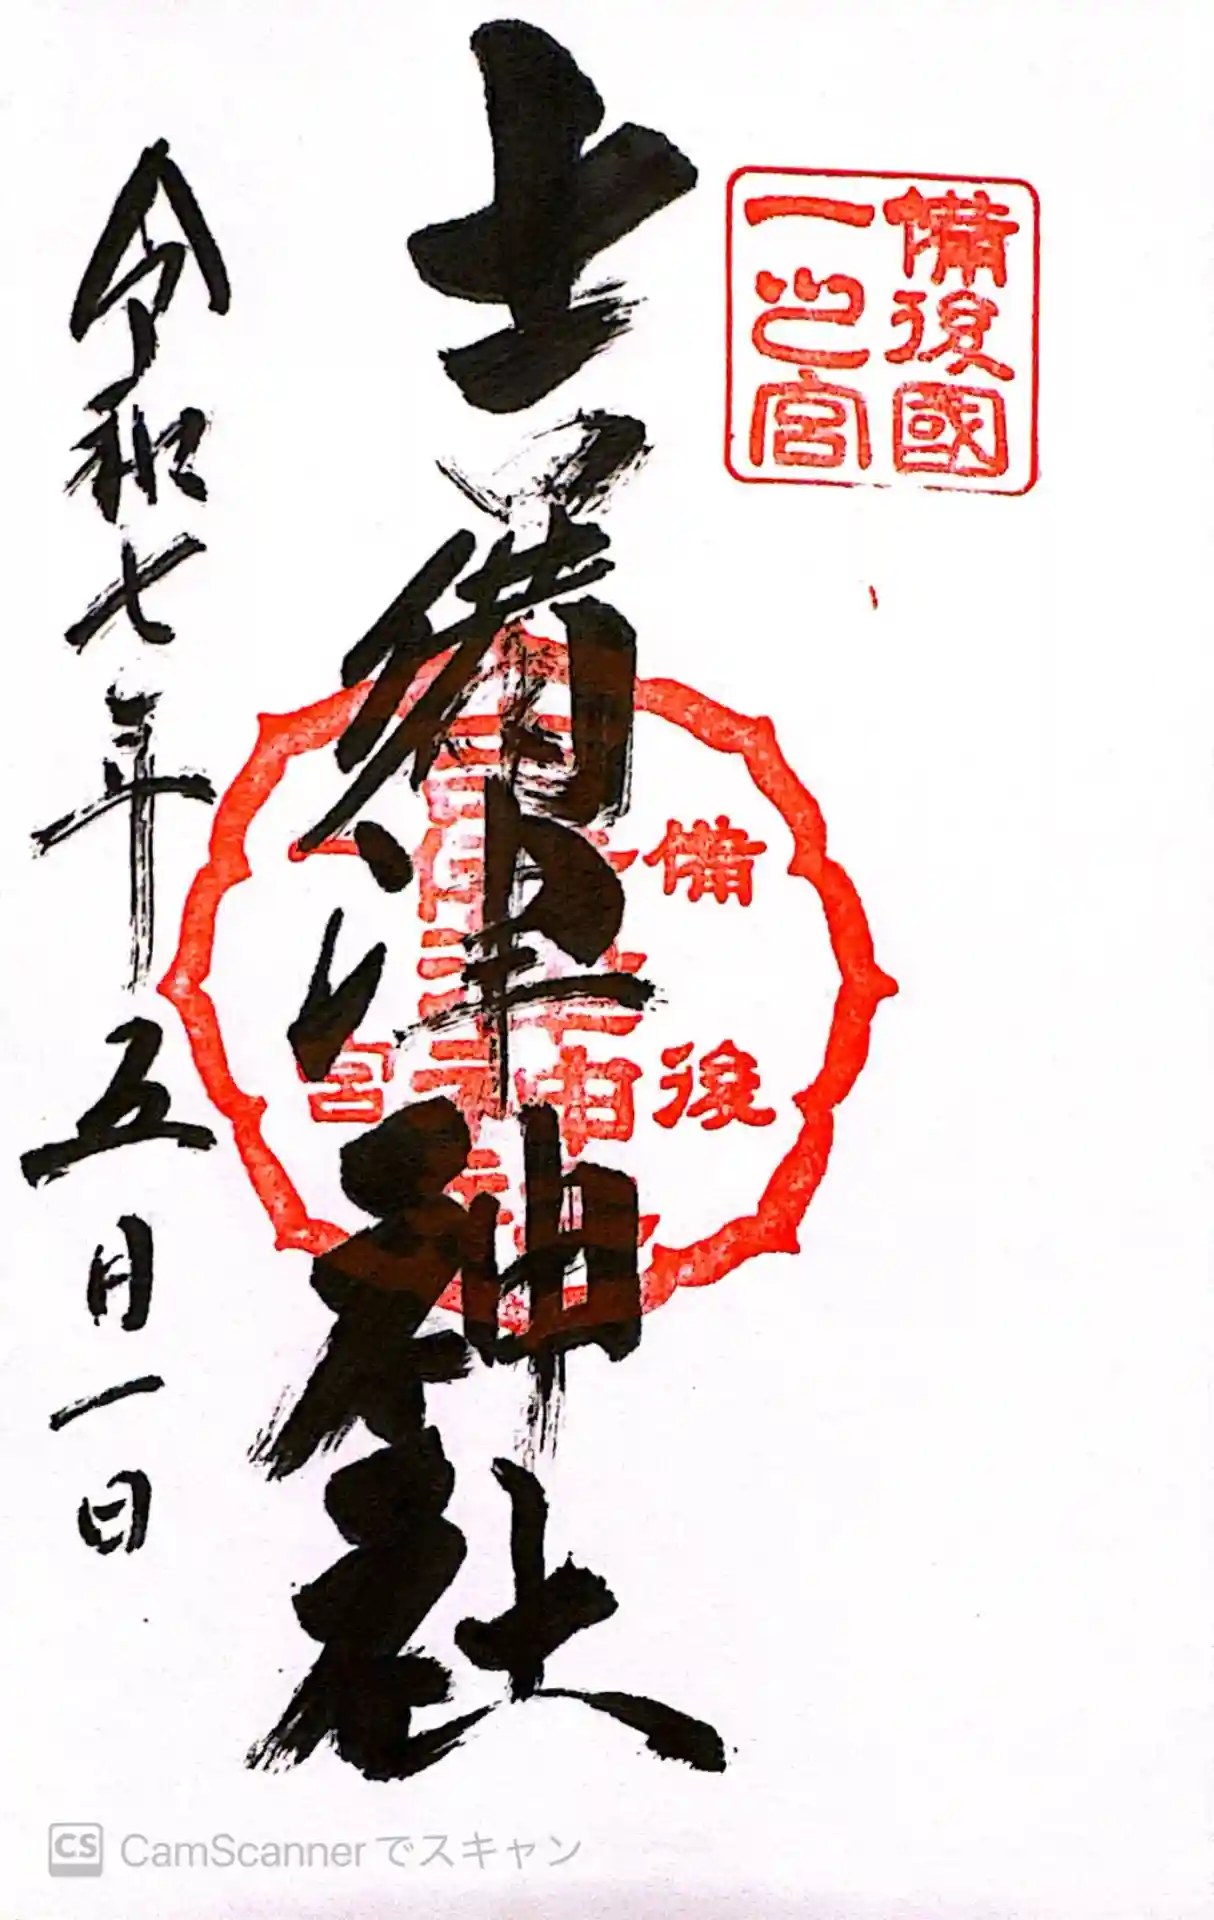 備後國
一之宮
吉備津神社
備後
一宮
令和七年五月一日
CS CamScannerでスキャン